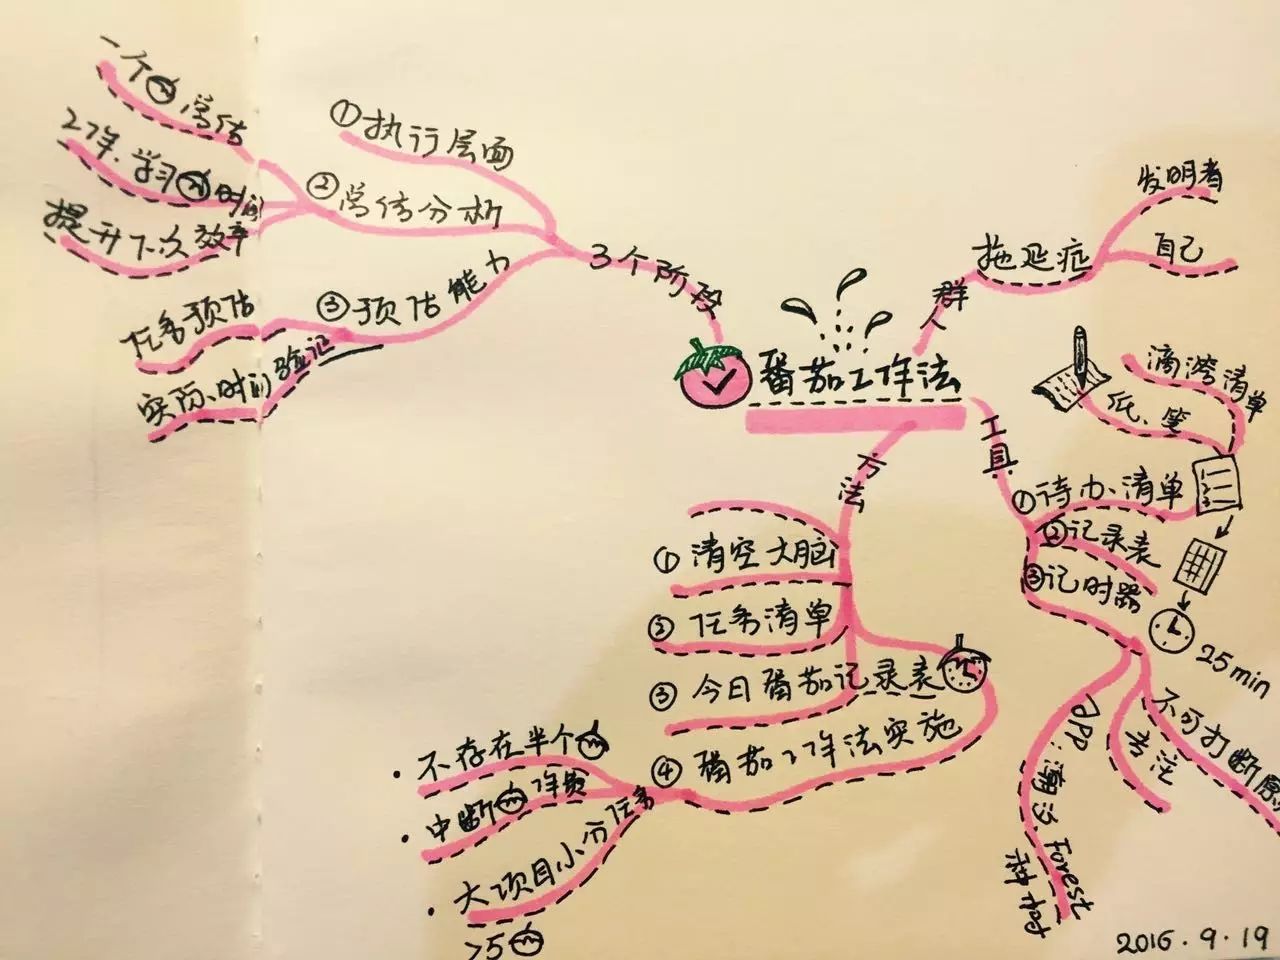 番茄工作法
群人
拖延症
发明者
自己
工具
①待办清单
纸、笔
滴湾清单
②记录表
③记时器
25min
不可打断原
专注
APP:潮汐 Forest
种树
方法
①清空大脑
②任务清单
③今日番茄记录表
④番茄工作法实施
·不存在半个
·中断 作费
·大项目小分任务
>5
3个阶段
①执行层面
②觉估分析
一个 觉估
工作、学习 时间
提升下次效率
③预估能力
任务预估
实际时间验证
2016.9.19